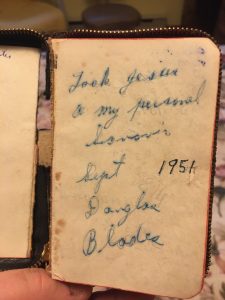 Took Jesus
as my personal
Savior
Sept 1951
Douglas
Blades